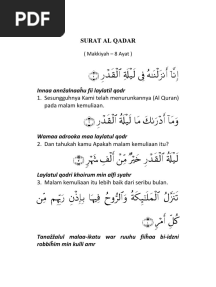 PDF
SURAT AL QADAR
( Makkiyah – 8 Ayat )
إِنَّا أَنزَلْنَٰهُ فِى لَيْلَةِ ٱلْقَدْرِ ۝١
Innaa anzalnaahu fii laylatil qadr
1. Sesungguhnya Kami telah menurunkannya (Al Quran)
pada malam kemuliaan.
وَمَآ أَدْرَىٰكَ مَا لَيْلَةُ ٱلْقَدْرِ ۝٢
Wamaa adraaka maa laylatul qadr
2. Dan tahukah kamu Apakah malam kemuliaan itu?
لَيْلَةُ ٱلْقَدْرِ خَيْرٌ مِّنْ أَلْفِ شَهْرٍ ۝٣
Laylatul qadri khairum min alfi syahr
3. Malam kemuliaan itu lebih baik dari seribu bulan.
تَنَزَّلُ ٱلْمَلَٰٓئِكَةُ وَٱلرُّوحُ فِيهَا بِإِذْنِ رَبِّهِم مِّن
كُلِّ أَمْرٍ ۝٤
Tanazzalul malaa-ikatu war ruuhu fiihaa bi-idzni
rabbihim min kulli amr